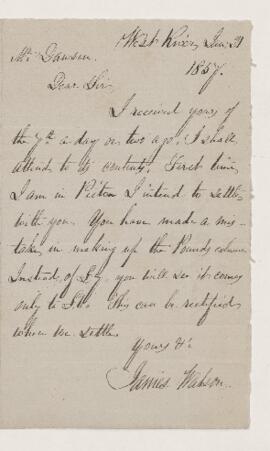 West River, Jan. 21
1857.
Mr Dawson
Dear Sir
I received yours of
the 7th a day or two ago. I shall
attend to its contents. First time
I am in Pictou I intend to settle
with you. You have made a mis-
take in making up the Pounds column
Instead of you will see it comes
only to This can be rectified
when we settle
Yours &c
James Watson